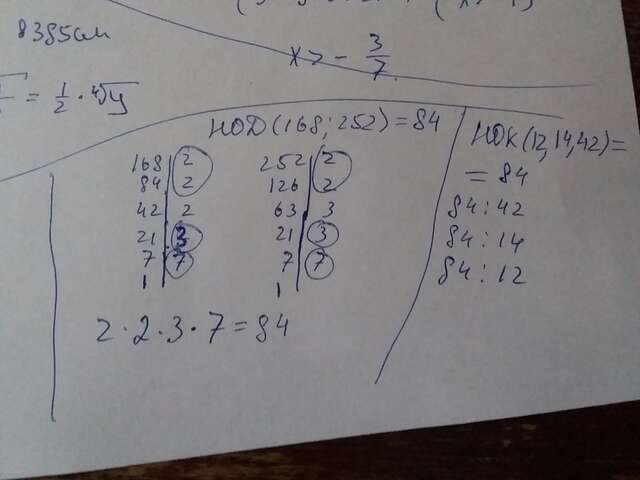 8385см
= 1/2 · 4)y
x > - 3/7
НОД(168; 252) = 84
168 | 2
84 | 2
42 | 2
21 | 3
7 | 7
1
252 | 2
126 | 2
63 | 3
21 | 3
7 | 7
1
2 · 2 · 3 · 7 = 84
НОК(12, 14, 42) =
= 84
84 : 42
84 : 14
84 : 12